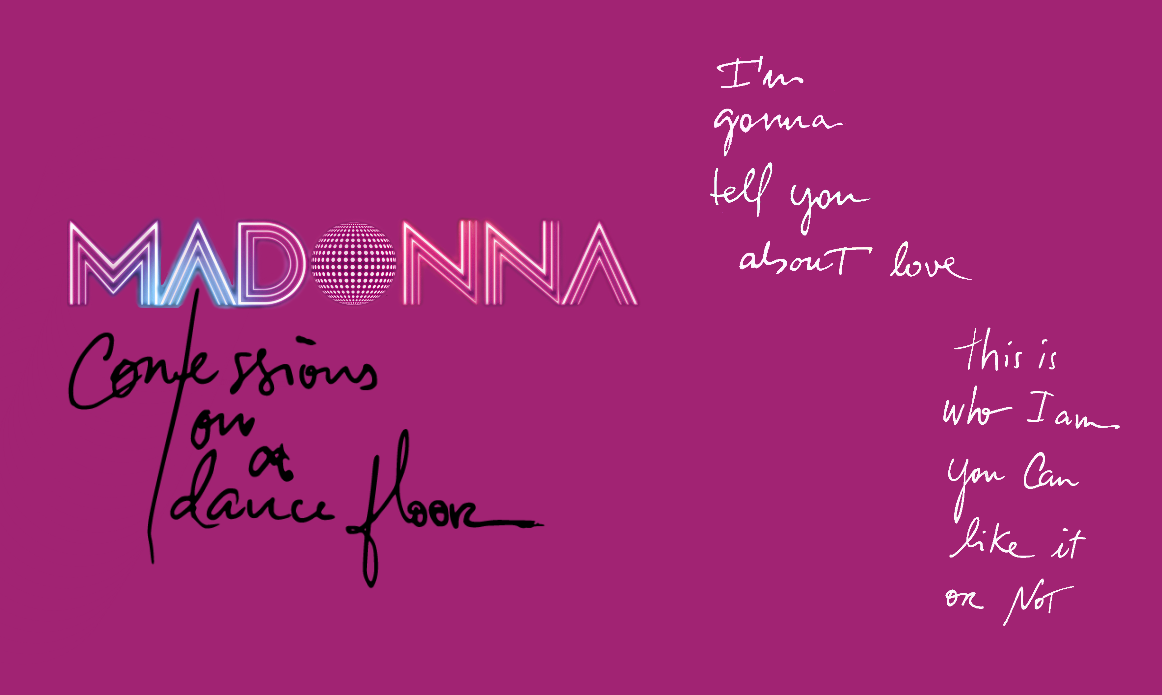 MADONNA
Confessions
on
a
dance floor
I'm
gonna
tell you
abouT love
this is
who I am
you Can
like it
or NoT